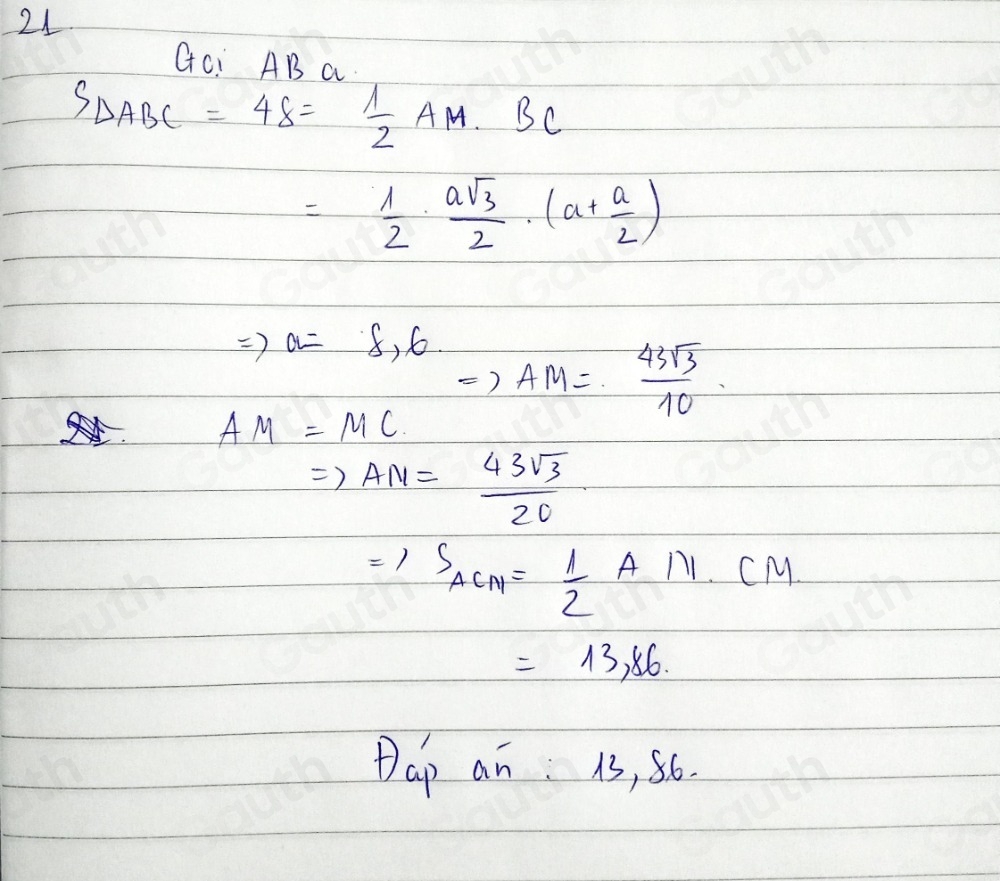 21.
Gọi AB a.
S∆ABC = 48 = 1/2 AM. BC
= 1/2 . a√3/2 . (a + a/2)
=> a = 8,6.
=> AM = 43√3/10.
AM = MC.
=> AN = 43√3/20
=> S_ACN = 1/2 A N. CM.
= 13,86.
Đáp án : 13,86.